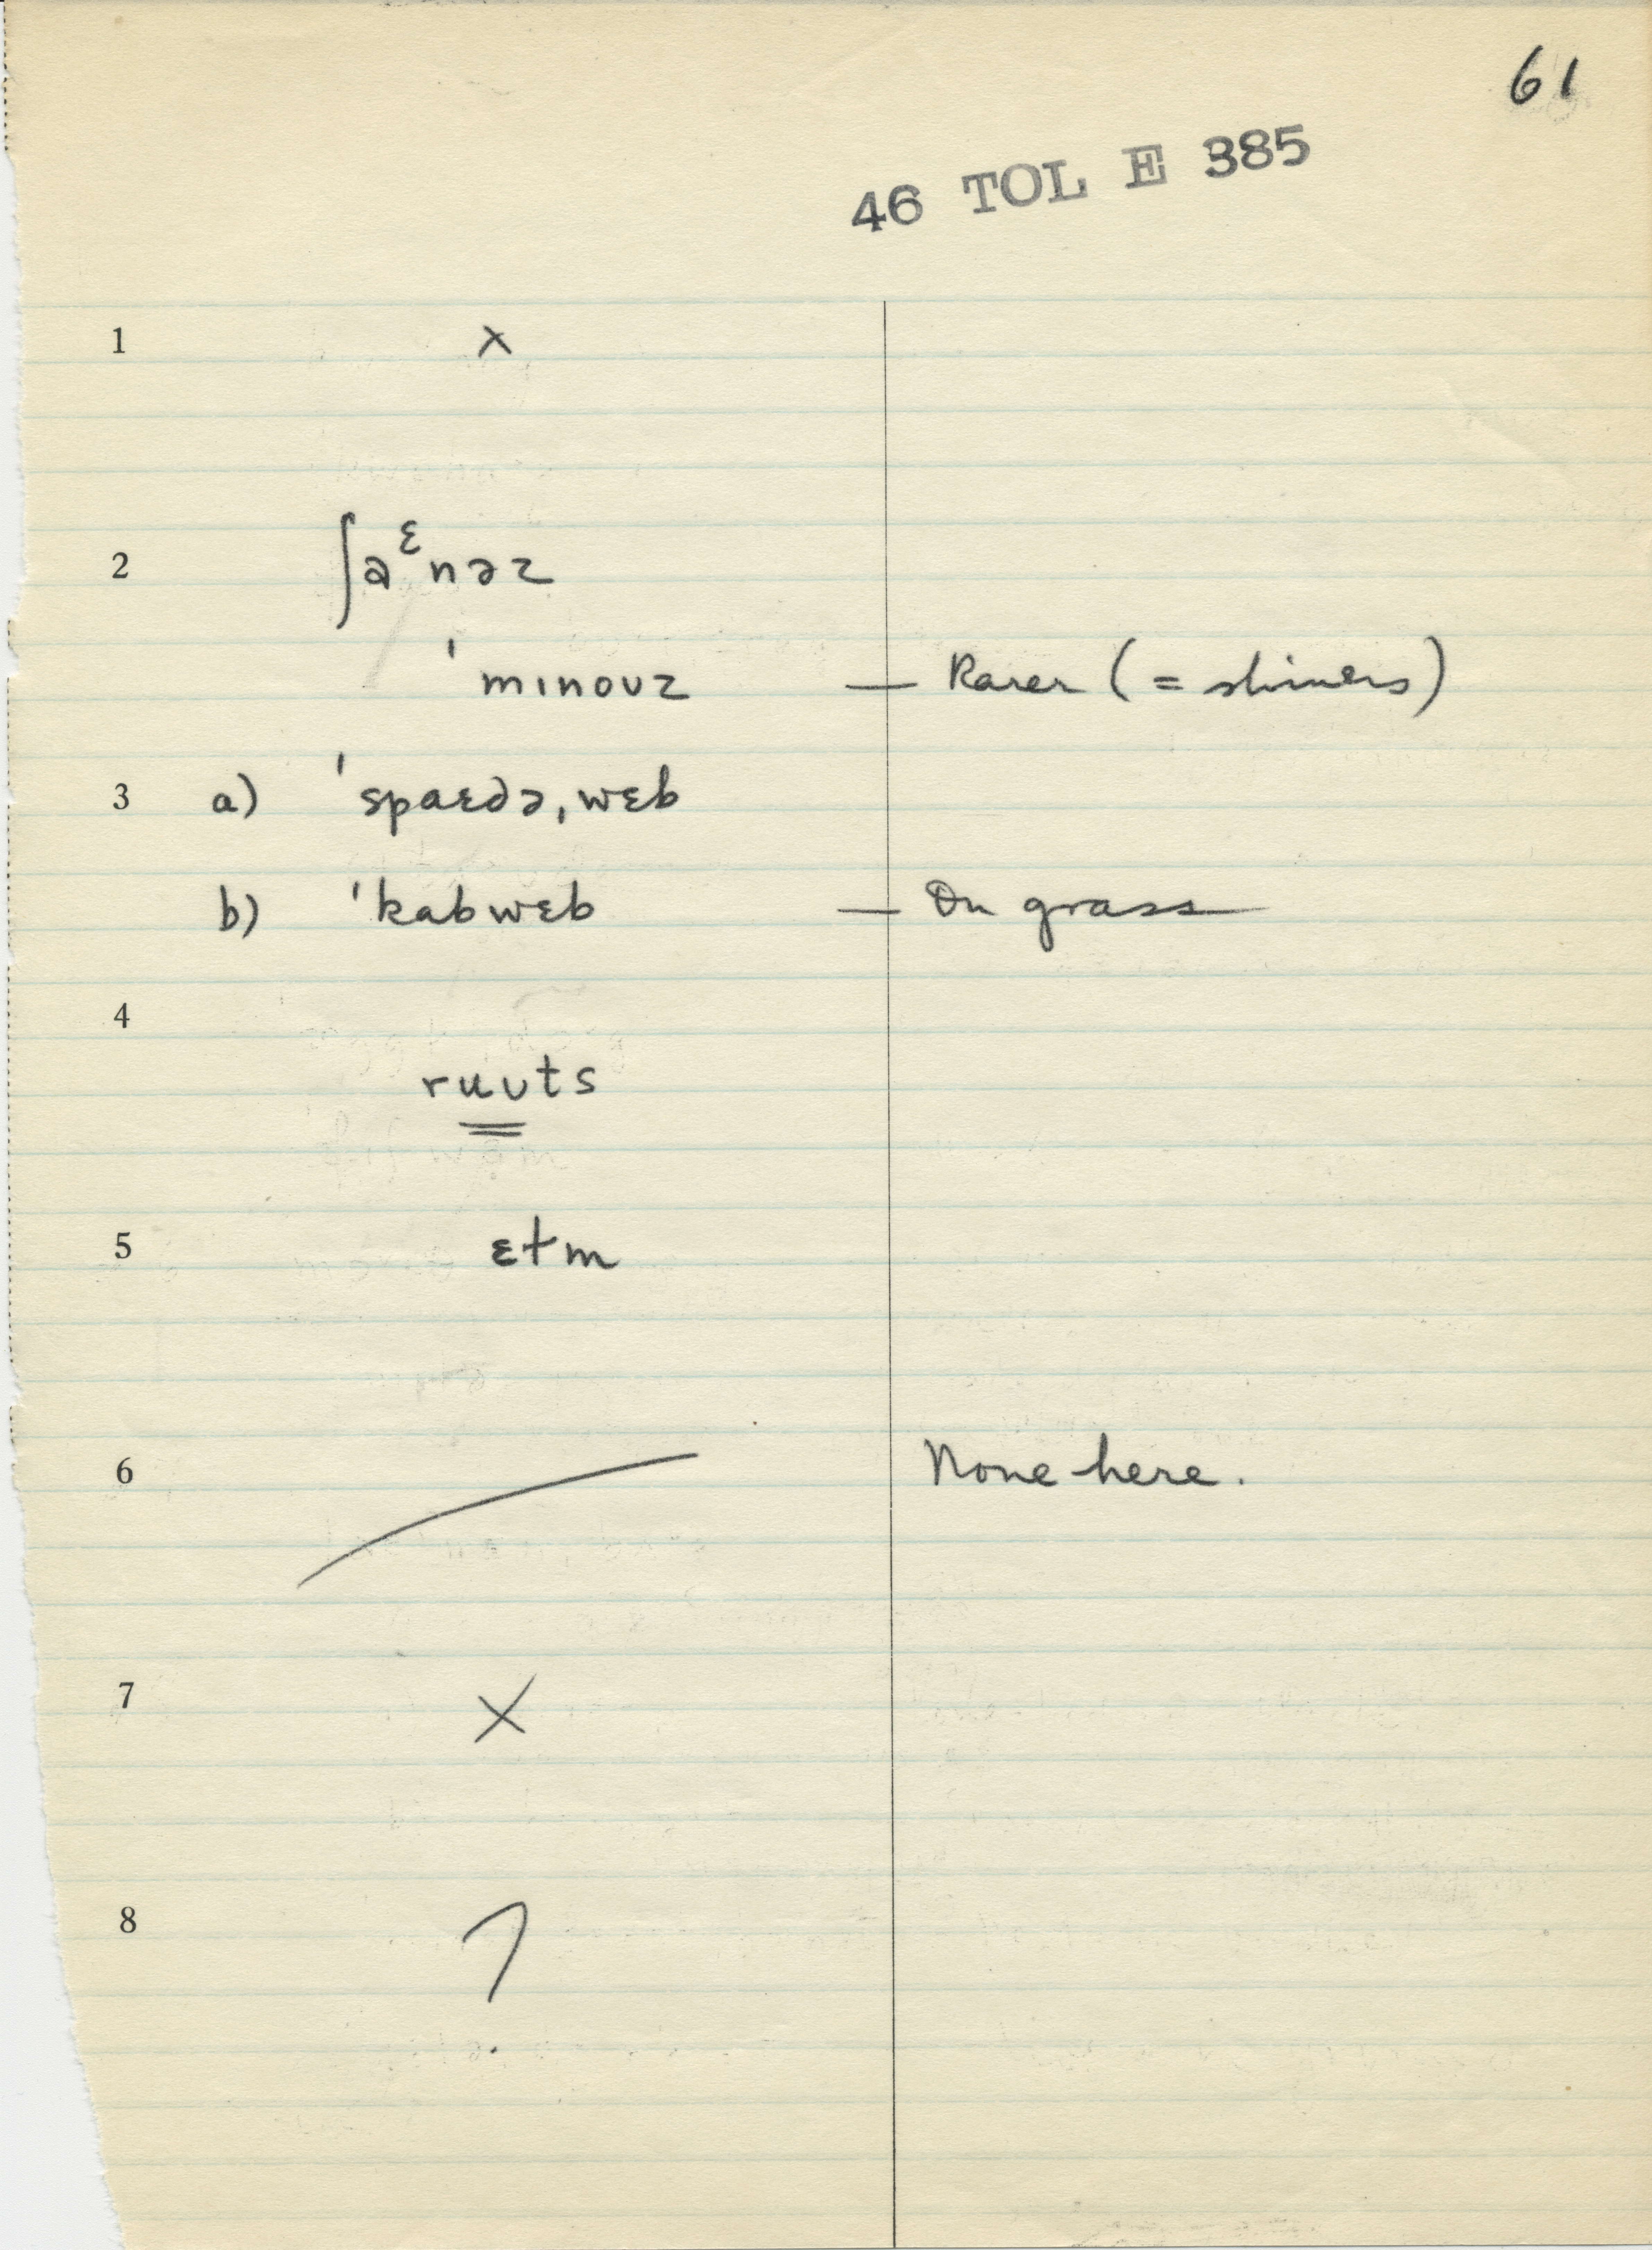 61
46 TOL E 385
1 ×
2 ʃaᵋnəz
ˈmɪnoʊz — Rarer (= shiners)
3 a) ˈspaɛdə,wɛb
b) ˈkabwɛb — On grass
4
ruʊts
5 ɛtm
6 None here.
7 ×
8 ?